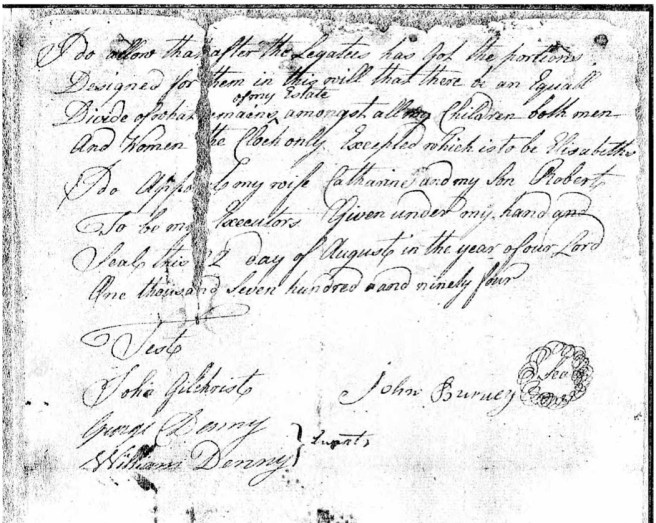 I do allow that after the Legatees has Got the portions
Designed for them in this will that there be an Equall
of my Estate
Divide of what remains amongst all my Children both men
And Women the Clock only Excepted which is to be Elisabeths
I do Appoint my wife Catharine and my Son Robert
To be my Executors Given under my hand and
Seal this 2 day of August in the year of our Lord
One thousand Seven hundred and ninety four
Test
John Gilchrist
John Burney Seal
George Denny
William Denny